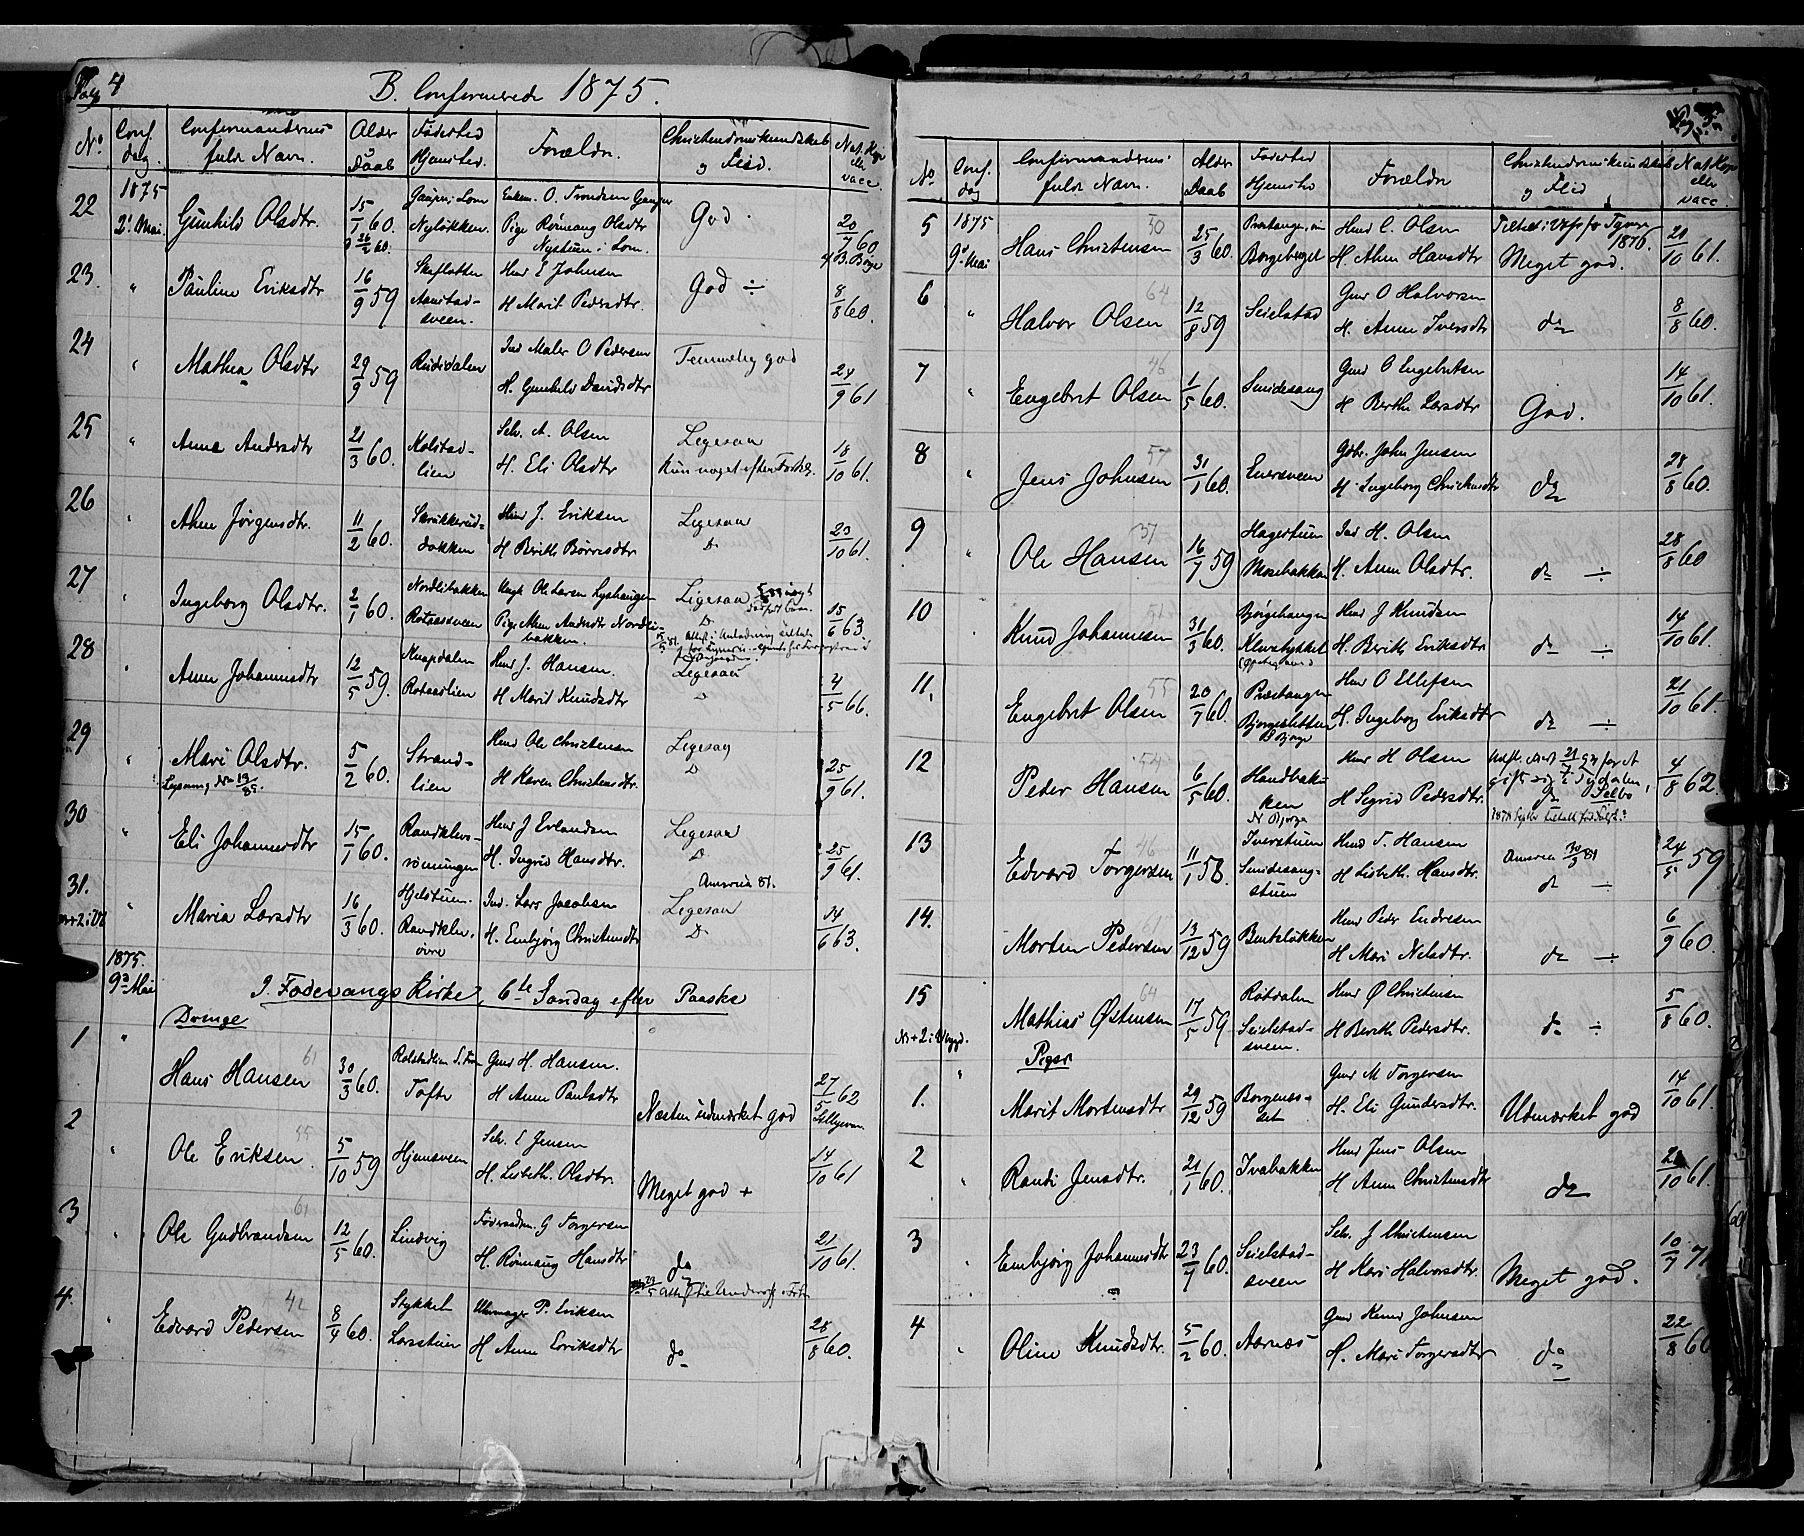 Pag 4
B. Confirmerede 1875.
No. Conf. dag. Confirmandernes fulde Navn. Alder Daab Fødested Hjemsted. Forældre. Christendomskundskab og Flid. Nat. Kop. eller vacc.
1875
22 2. Mai. Gunhild Olsdtr. 15/1 60. Nyløkken. Enkem. O. Trondsen
Pige Rønnaug Olsdtr Nystuen i Lom. God. 20/7 60
23 " Pauline Eriksdtr 16/9 59 Skeslotten Aanstadsveen. Huus E Johnsen
H Marit Pedersdtr. God ÷ 8/8 60.
24 " Mathea Olsdtr 29/9 59 Rudidalen Ind Maler O Pedersen
H. Gunhild Davidsdtr Temmelig god 24/9 61
25 " Anne Andersdtr 21/3 60. Kolstadlien Selv. A. Olsen
H. Eli Olsdtr Ligesaa
kun noget 18/10 61.
26 " Ahne Jørgensdtr. 11/2 60. Skrukkeruddokken Huus J. Eriksen
H Berith Børresdtr Ligesaa
D 23/10 61.
27 " Ingeborg Olsdtr. 2/1 60. Nordlibakken Rotaassveen Ungk Ole Larsen
Pige Ahne Andersdtr Nordlibakken. Ligesaa
D 15/6 63.
28 " Anne Johannesdtr 12/5 59. Knapdalen Rotaaslien Huus J. Hansen.
H Marit Knudsdtr Ligesaa
D 4/5 66.
29 " Mari Olsdtr. 5/2 60. Strandlien Huus Ole Christensen
H Karen Christensdtr. Ligesaa
D 25/9 61.
Lysning
30 " Eli Johannesdtr 15/1 60. Randklevrønningen Huus J Erlandsen
H. Ingrid Hansdtr. Ligesaa
D 25/9 61.
31. " Maria Larsdtr 16/3 60. Hjelstuen. Randklev. øvre Ind. Lars Jacobsen
H. Embjørg Christensdtr Amerika 81.
Ligesaa
D 14/6 63.
1875.
9de Mai I Fodevangs Kirke, 6te Søndag efter Paaske
Drenge
1 " Hans Hansen 61 30/3 60. Tofte Gmd H. Hansen.
H Anne Paulsdtr Næsten udmærket god 27/5 62
2 Ole Eriksen 55 5/10 59 Hjemsveen Selv. E Jensen
H. Lisbeth. Olsdtr. Meget god + 14/10 61
3 " Ole Gudbrandsen 61 12/5 60. Lindvig Føderaadsm. G Torgersen
H. Rønnaug Hansdtr do 21/10 61.
4. " Edvard Pedersen 42 8/4 60. Stykket Larsstuen P. Eriksen
H Anne Eriksdtr do 28/8 60.
No Conf. dag Confirmandernes fulde Navn. Alder Daab Fødested Hjemsted Forældre Christendomskundskab og Flid Nat. Kop. eller vacc.
1875
5 9. Mai Hans Christensen 50 25/3 60. Borgeberget Huus C. Olsen
H. Ahne Hansdtr Meget god. 21/10 61.
6 " Halvor Olsen 64 12/8 59 Seielstad Gmd O Halvorsen
H. Anne Iversdtr do 8/8 60.
7 " Engebret Olsen 46 1/5 60. Smidesang Gmd O Engebretsen
H Berthe Larsdtr God. 14/10 61.
8 Jens Johnsen 57 31/1 60. Enersveen Gdbr. John Jensen
H Ingeborg Christensdtr do 28/8 60.
9 " Ole Hansen 37 16/7 59 Hagestuen Mosebakken Ind H. Olsen
H. Anne Olsdtr. do ÷ 28/8 60
10 Knud Johannesen 31/3 60. Bjørgehaugen Klevstykket Huus J Knudsen
H. Berith Eriksdtr do ÷ 14/10 61.
11. Engebret Olsen 55 20/7 60. Præstangen Bjørgesletten Huus O Ellefsen
H. Ingeborg Eriksdtr do ÷ 21/10 61.
12 Peder Hansen 54 6/5 60. Haudbakken N Bjørge Huus H Olsen
H Sigrid Pedersdtr. Tydalen, Selbo 4/8 62
13 Edvard Torgersen 46 11/1 58. Iverstuen Smidesangstuen Huus T. Hansen
H Lisbeth. Hansdtr. Amerika 30/3 81
do ÷ 24/5 59
14. Morten Pedersen 61 13/12 59 Bentsløkken Huus Peder Endresen
H Mari Nelsdtr. do ÷ 6/9 60
15 Mathias Østensen 64 17/5 59 Røtdalen Seielstadsveen. Huus Ø Christensen
H Berith Pedersdtr. do ÷ 5/8 60.
Piger
1. " Marit Mortensdtr 29/12 59 Borgenæset Gmd M Torgersen
H. Eli Gundersdtr. Udmærket god 14/10 61.
2 " Randi Jensdtr. 21/1 60. Ivabakken Huus Jens Olsen
H Anne Christensdtr do 21/10 61.
3 " Embjørg Johannesdtr 23/7 60. Seielstadsveen Selv. J Christensen
H Kari Halvorsdtr. Meget god. 10/7 71
4 " Oline Knudsdtr. 5/2 60. Aarnæs Gmd Knud Johnsen
H. Mari Torgersdtr do 22/8 60